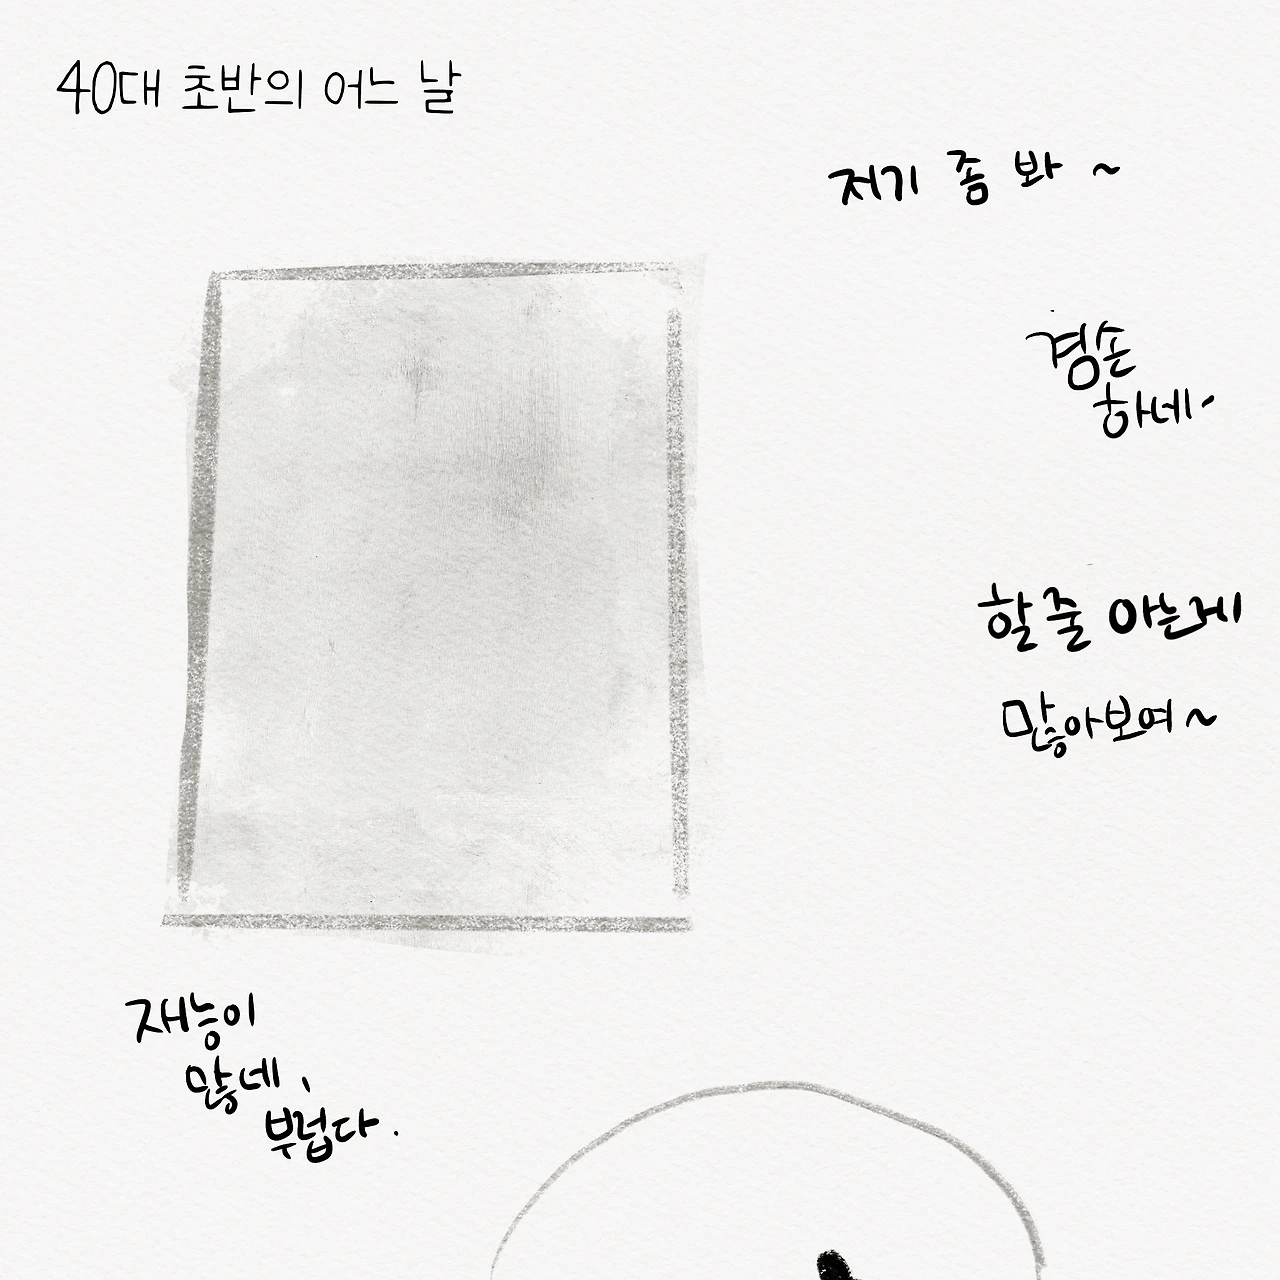 40대 초반의 어느 날
저기 좀 봐 ~
겸손
하네~
할줄 아는게
많아보여~
재능이
많네,
부럽다.